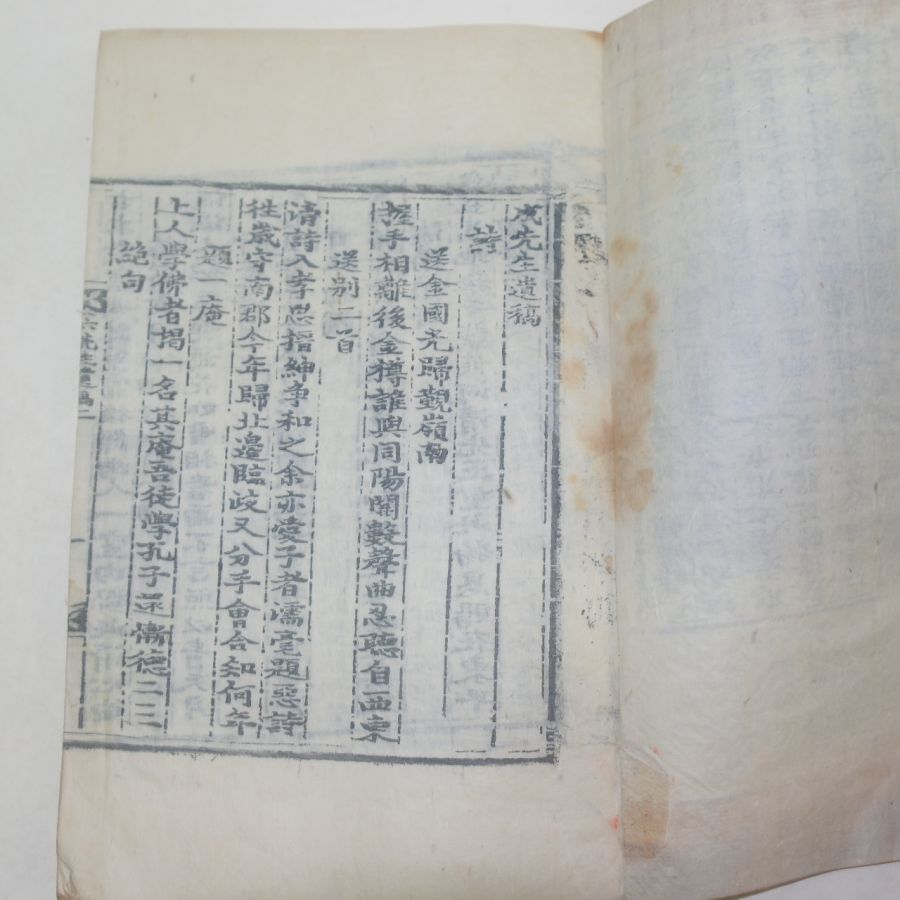 成先生遺稿
詩
送金國光歸覲嶺南
握手相離後金樽誰與同陽關數聲曲忍聽自西東
送别二首
清詩入孝思搢紳爭和之余亦愛子者濡毫題惡詩
徃歳守南郡今年歸北邊臨歧又分手會合知何年
題一庵
上人學佛者揭一名其庵吾徒學孔子深慚德二三
絶句
六先生遺稿二